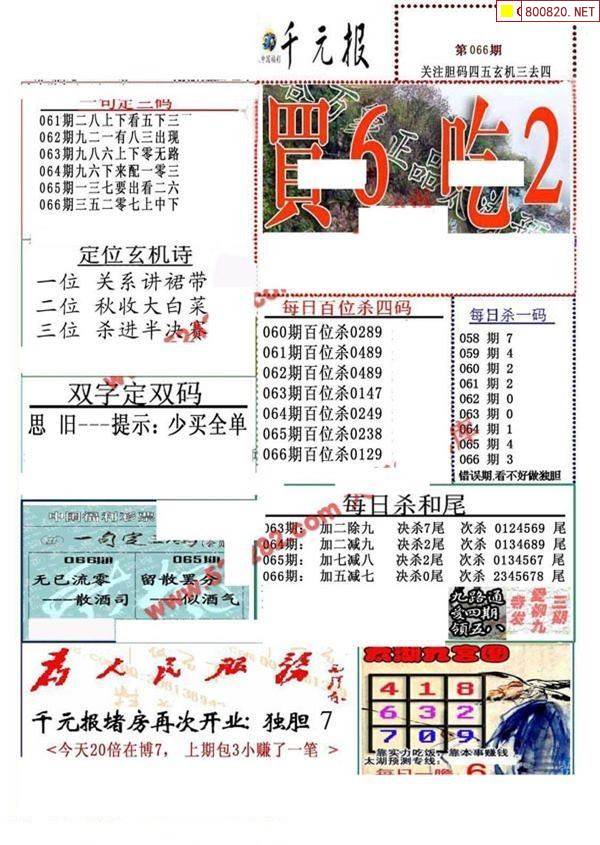 800820.NET
千元报
第066期
关注胆码四五玄机三去四
一句定三码
061期二八上下看五下三
062期九二一有八三出现
063期九八六上下零无路
064期九六下来配一零三
065期一三七要出看二六
066期三五二零七上中下
買6吃2
定位玄机诗
一位 关系讲裙带
二位 秋收大白菜
三位 杀进半决赛
每日百位杀四码
060期百位杀0289
061期百位杀0489
062期百位杀0489
063期百位杀0147
064期百位杀0249
065期百位杀0238
066期百位杀0129
每日杀一码
058 期 7
059 期 4
060 期 2
061 期 2
062 期 0
063 期 0
064 期 1
065 期 4
066 期 3
错误期,看不好做独胆
双字定双码
思 旧---提示: 少买全单
中国福利彩票
一句定
066期
无已流零
——散酒司
065期
留散罢分
——似酒气
每日杀和尾
063期: 加二除九 决杀7尾 次杀 0124569 尾
064期: 加二减九 决杀2尾 次杀 0134689 尾
065期: 加七减八 决杀2尾 次杀 0134567 尾
066期: 加五减七 决杀0尾 次杀 2345678 尾
九路通
爱四期
领五八
三期
爱柳九
奇发
为人民服务
千元报堵房再次开业: 独胆 7
<今天20倍在博7, 上期包3小赚了一笔 >
太湖九宫图
4 1 8
6 3 2
7 0 9
靠实力吃饭, 靠本事赚钱
太湖预测专线:
每日一胆 6